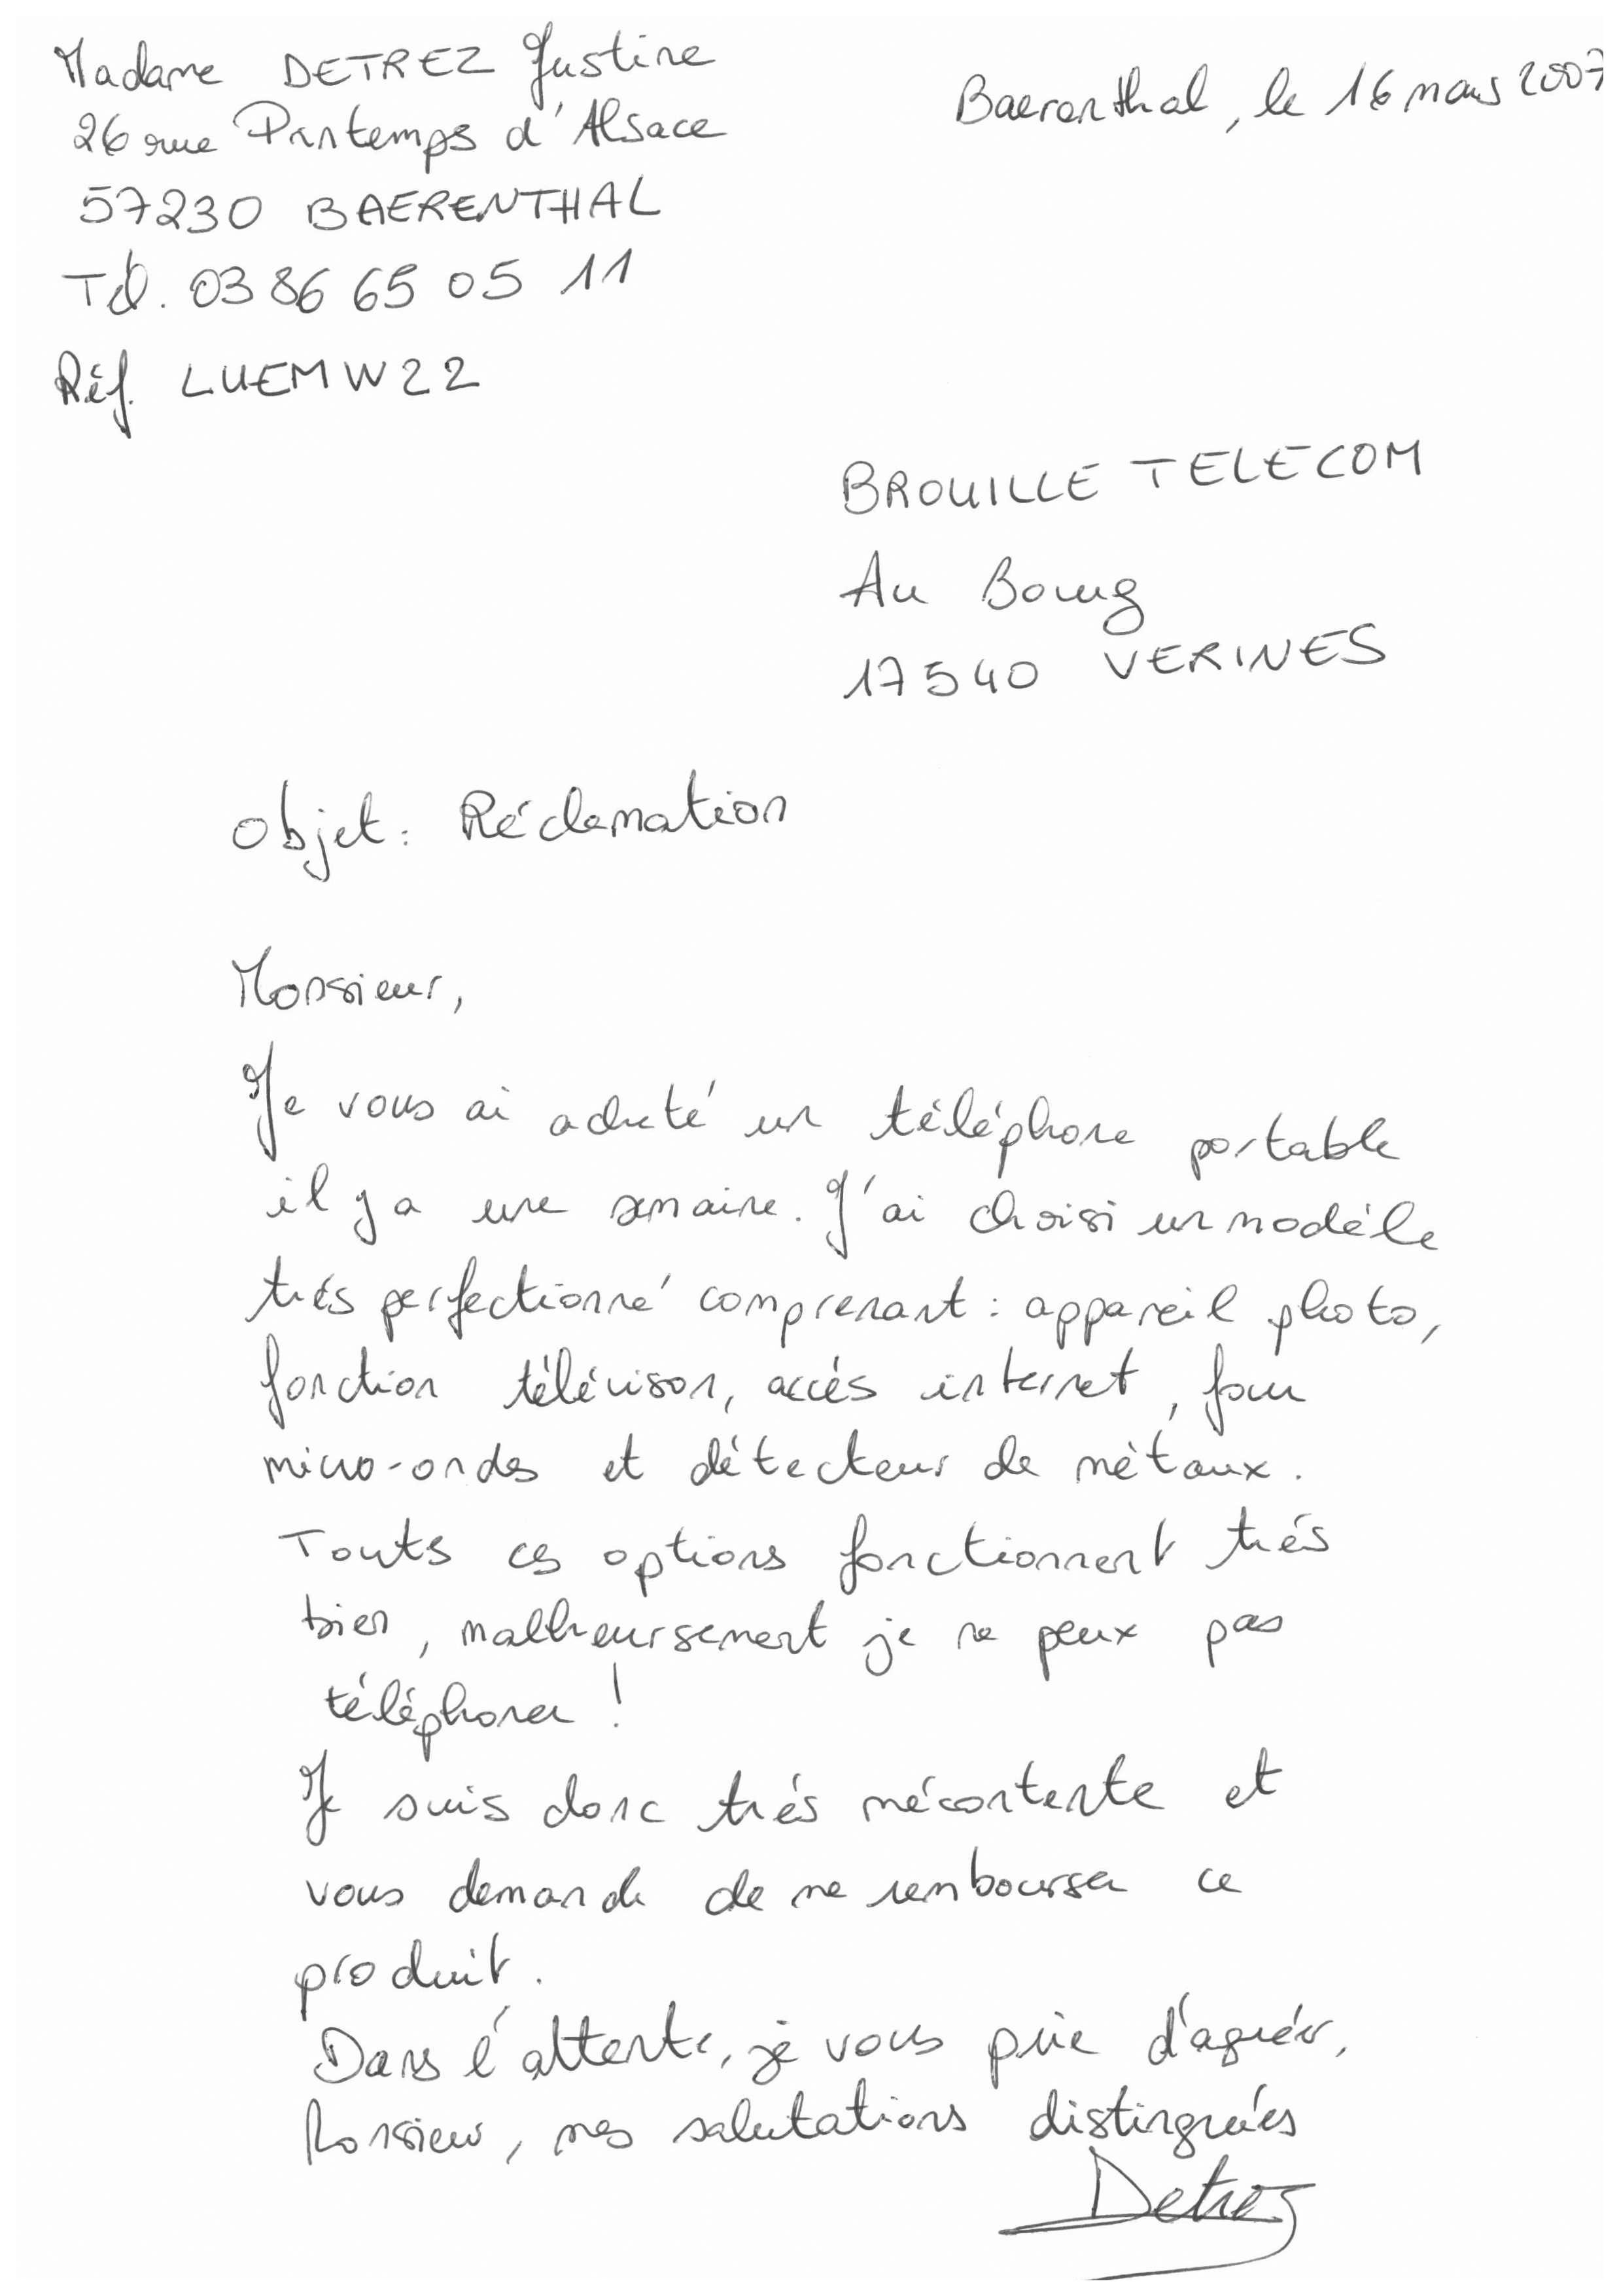 Madame DETREZ Justine
Baerenthal, le 16 mars 2007
26 rue Printemps d'Alsace
57230 BAERENTHAL
Tél. 03 86 65 05 11
Réf. LUEMW22
BROUILLE TELECOM
Au Bourg
17540 VERINES
Objet : Réclamation
Monsieur,
Je vous ai acheté un téléphone portable
il y a une semaine. J'ai choisi un modèle
trés perfectionné comprenant : appareil photo,
fonction télévison, accés internet, four
micro-ondes et détecteur de métaux.
Touts ces options fonctionnent trés
bien, malheursement je ne peux pas
téléphoner !
Je suis donc trés mécontente et
vous demande de me rembourser ce
produit.
Dans l'attente, je vous prie d'agréer,
Monsieur, mes salutations distinguées
Detrez